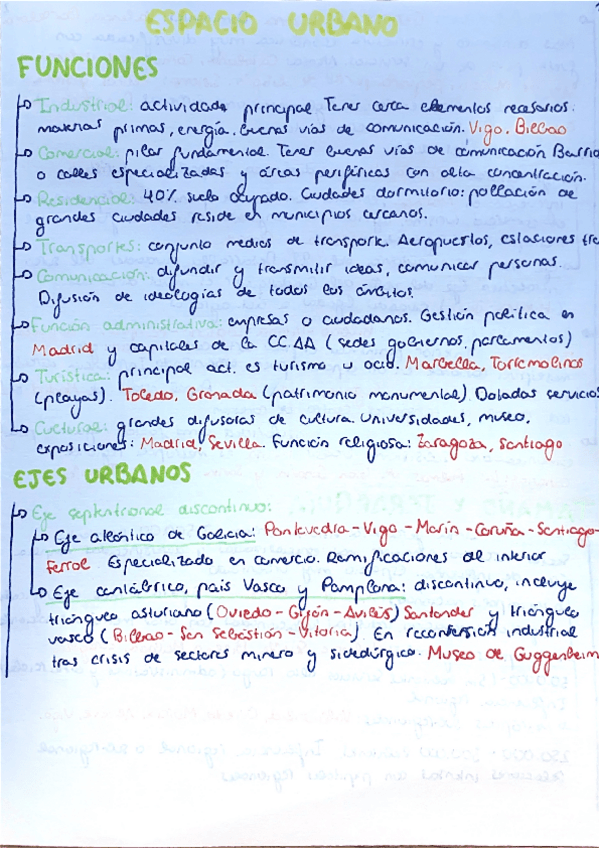 ESPACIO URBANO
FUNCIONES
Industrial: actividade principal. Tener cerca elementos necesarios:
materias primas, energía, buenas vías de comunicación. Vigo, Bilbao
Comercial: pilar fundamental. Tener buenas vías de comunicación Barrio
o calles especializadas y áreas periféricas con alta concentración.
Residencial: 40% suelo ocupado. Ciudades dormitorio: población de
grandes ciudades reside en municipios cercanos.
Transportes: conjunto medios de transporte. Aeropuertos, estaciones tre
Comunicación: difundir y transmitir ideas, comunicar personas.
Difusión de ideologías de todos los ámbitos.
Función administrativa: empresas o ciudadanos. Gestión política en
Madrid y capitales de la CC.AA (sedes gobiernos, parlamentos)
Turística: principal act. es turismo u ocio. Marbella, Torremolinos
(playas). Toledo, Granada (patrimonio monumental) Dotadas servicios
Cultural: grandes difusoras de cultura. Universidades, museo,
exposiciones: Madrid, Sevilla. Función religiosa: Zaragoza, Santiago
EJES URBANOS
Eje septentrional discontinuo:
Eje atlántico de Galicia: Pontevedra - Vigo - Marín - Coruña - Santiago -
Ferrol. Especializado en comercio. Ramificaciones al interior
Eje cantábrico, país Vasco y Pamplona: discontinuo, incluye
triángulo asturiano (Oviedo - Gijón - Avilés) Santander y triángulo
vasco (Bilbao - San Sebastián - Vitoria). En reconversión industrial
tras crisis de sectores minero y siderúrgico. Museo de Guggenheim